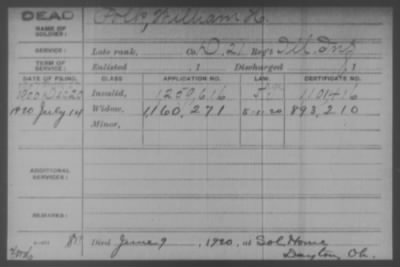 DEAD
NAME OF SOLDIER: Polk, William H.
SERVICE: Late rank, Co. D, 21 Reg't Ill. Inf
TERM OF SERVICE: Enlisted , 1 Discharged , 1
DATE OF FILING. CLASS. APPLICATION NO. LAW. CERTIFICATE NO.
1900 Dec 20 Invalid, 1259,616
1920 July 14 Widow, 1,160,271 893,210
Minor,
ADDITIONAL SERVICES:
REMARKS:
Died June 9, 1920, at Sol. Home
Dayton, Oh.